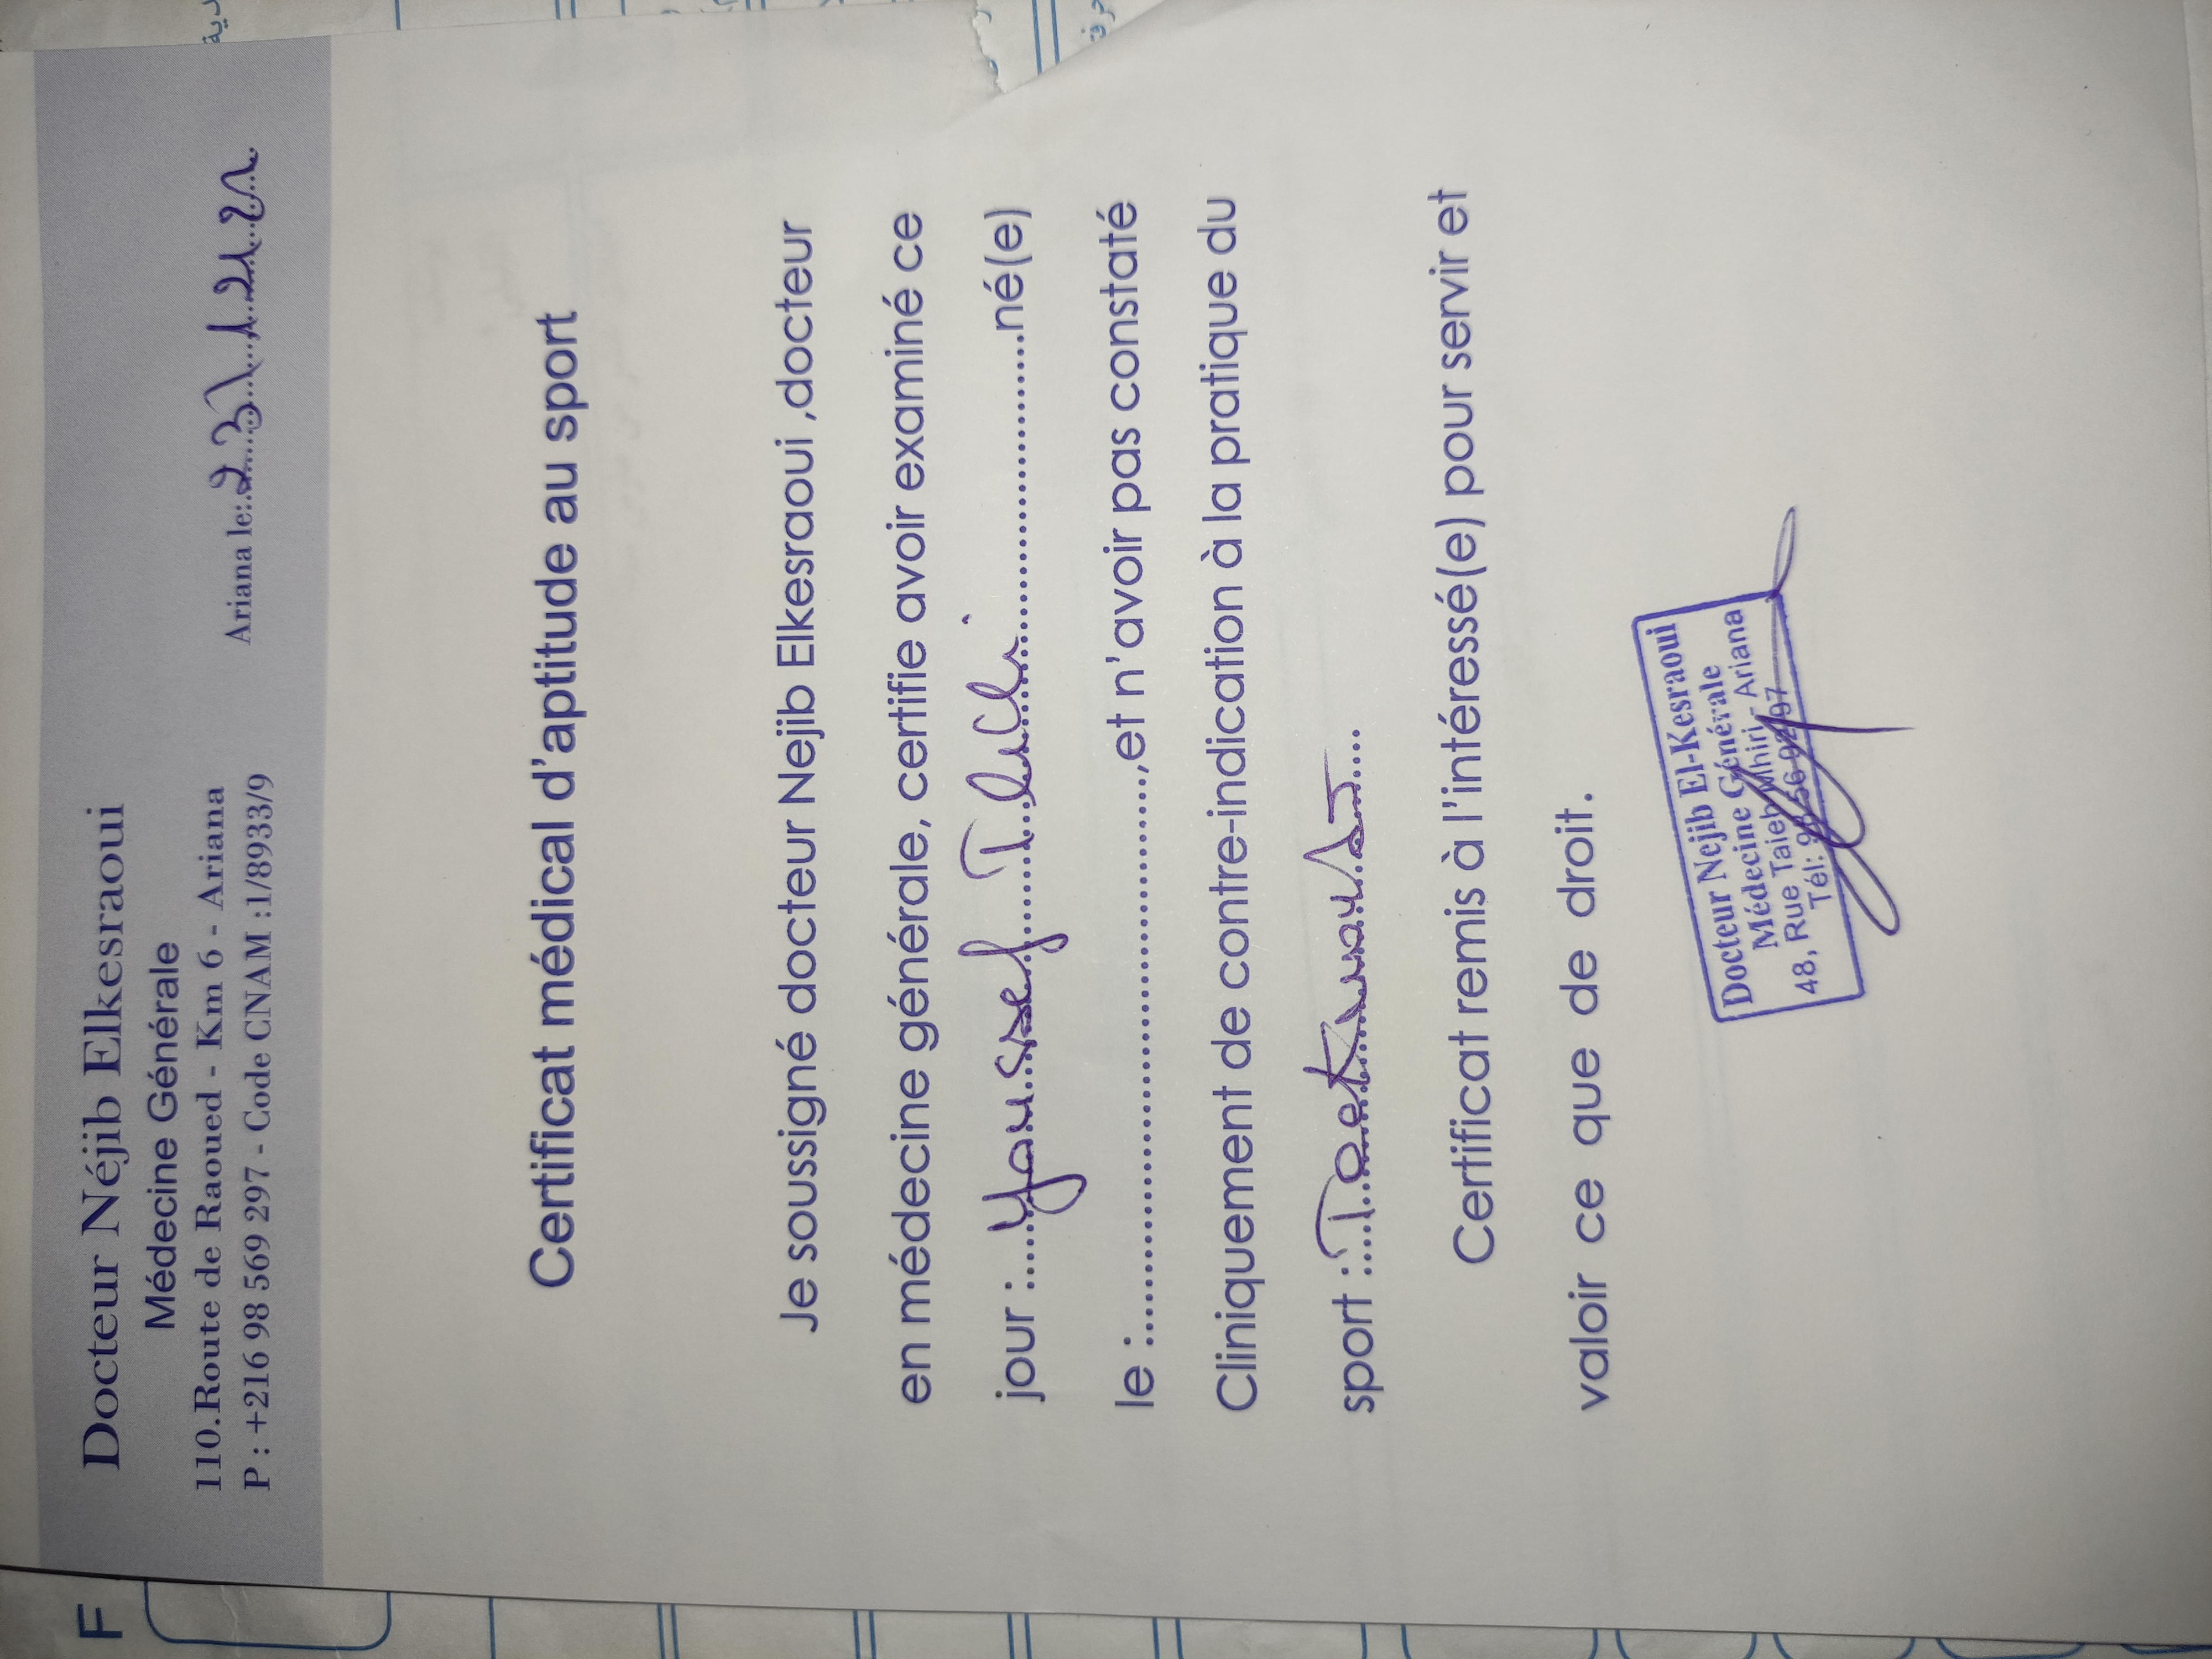 F
Docteur Néjib Elkesraoui
Médecine Générale
110.Route de Raoued - Km 6 - Ariana
P : +216 98 569 297 - Code CNAM :1/8933/9
Ariana le:
Certificat médical d'aptitude au sport
Je soussigné docteur Nejib Elkesraoui ,docteur
en médecine générale, certifie avoir examiné ce
jour : Youssef né(e)
le : ,et n'avoir pas constaté
Cliniquement de contre-indication à la pratique du
sport :
Certificat remis à l'intéressé(e) pour servir et
valoir ce que de droit.
Docteur Nejib El-Kesraoui
Médecine Générale
48, Rue Taieb Mhiri - Ariana
Tél: